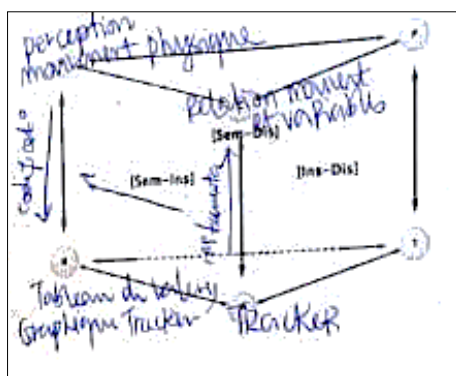 perception
mouvement physique
Relation mouvement
et variables
[Sem-Dis]
[Sem-Ins]
[Ins-Dis]
Tableau de valeurs
Graphique Tracker
TRACKER